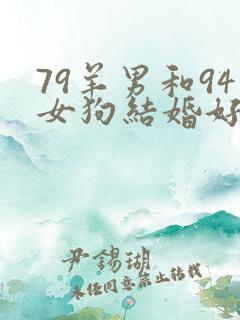 79羊男和94
女狗結婚好
尹錫瑚
未经同意禁止转载